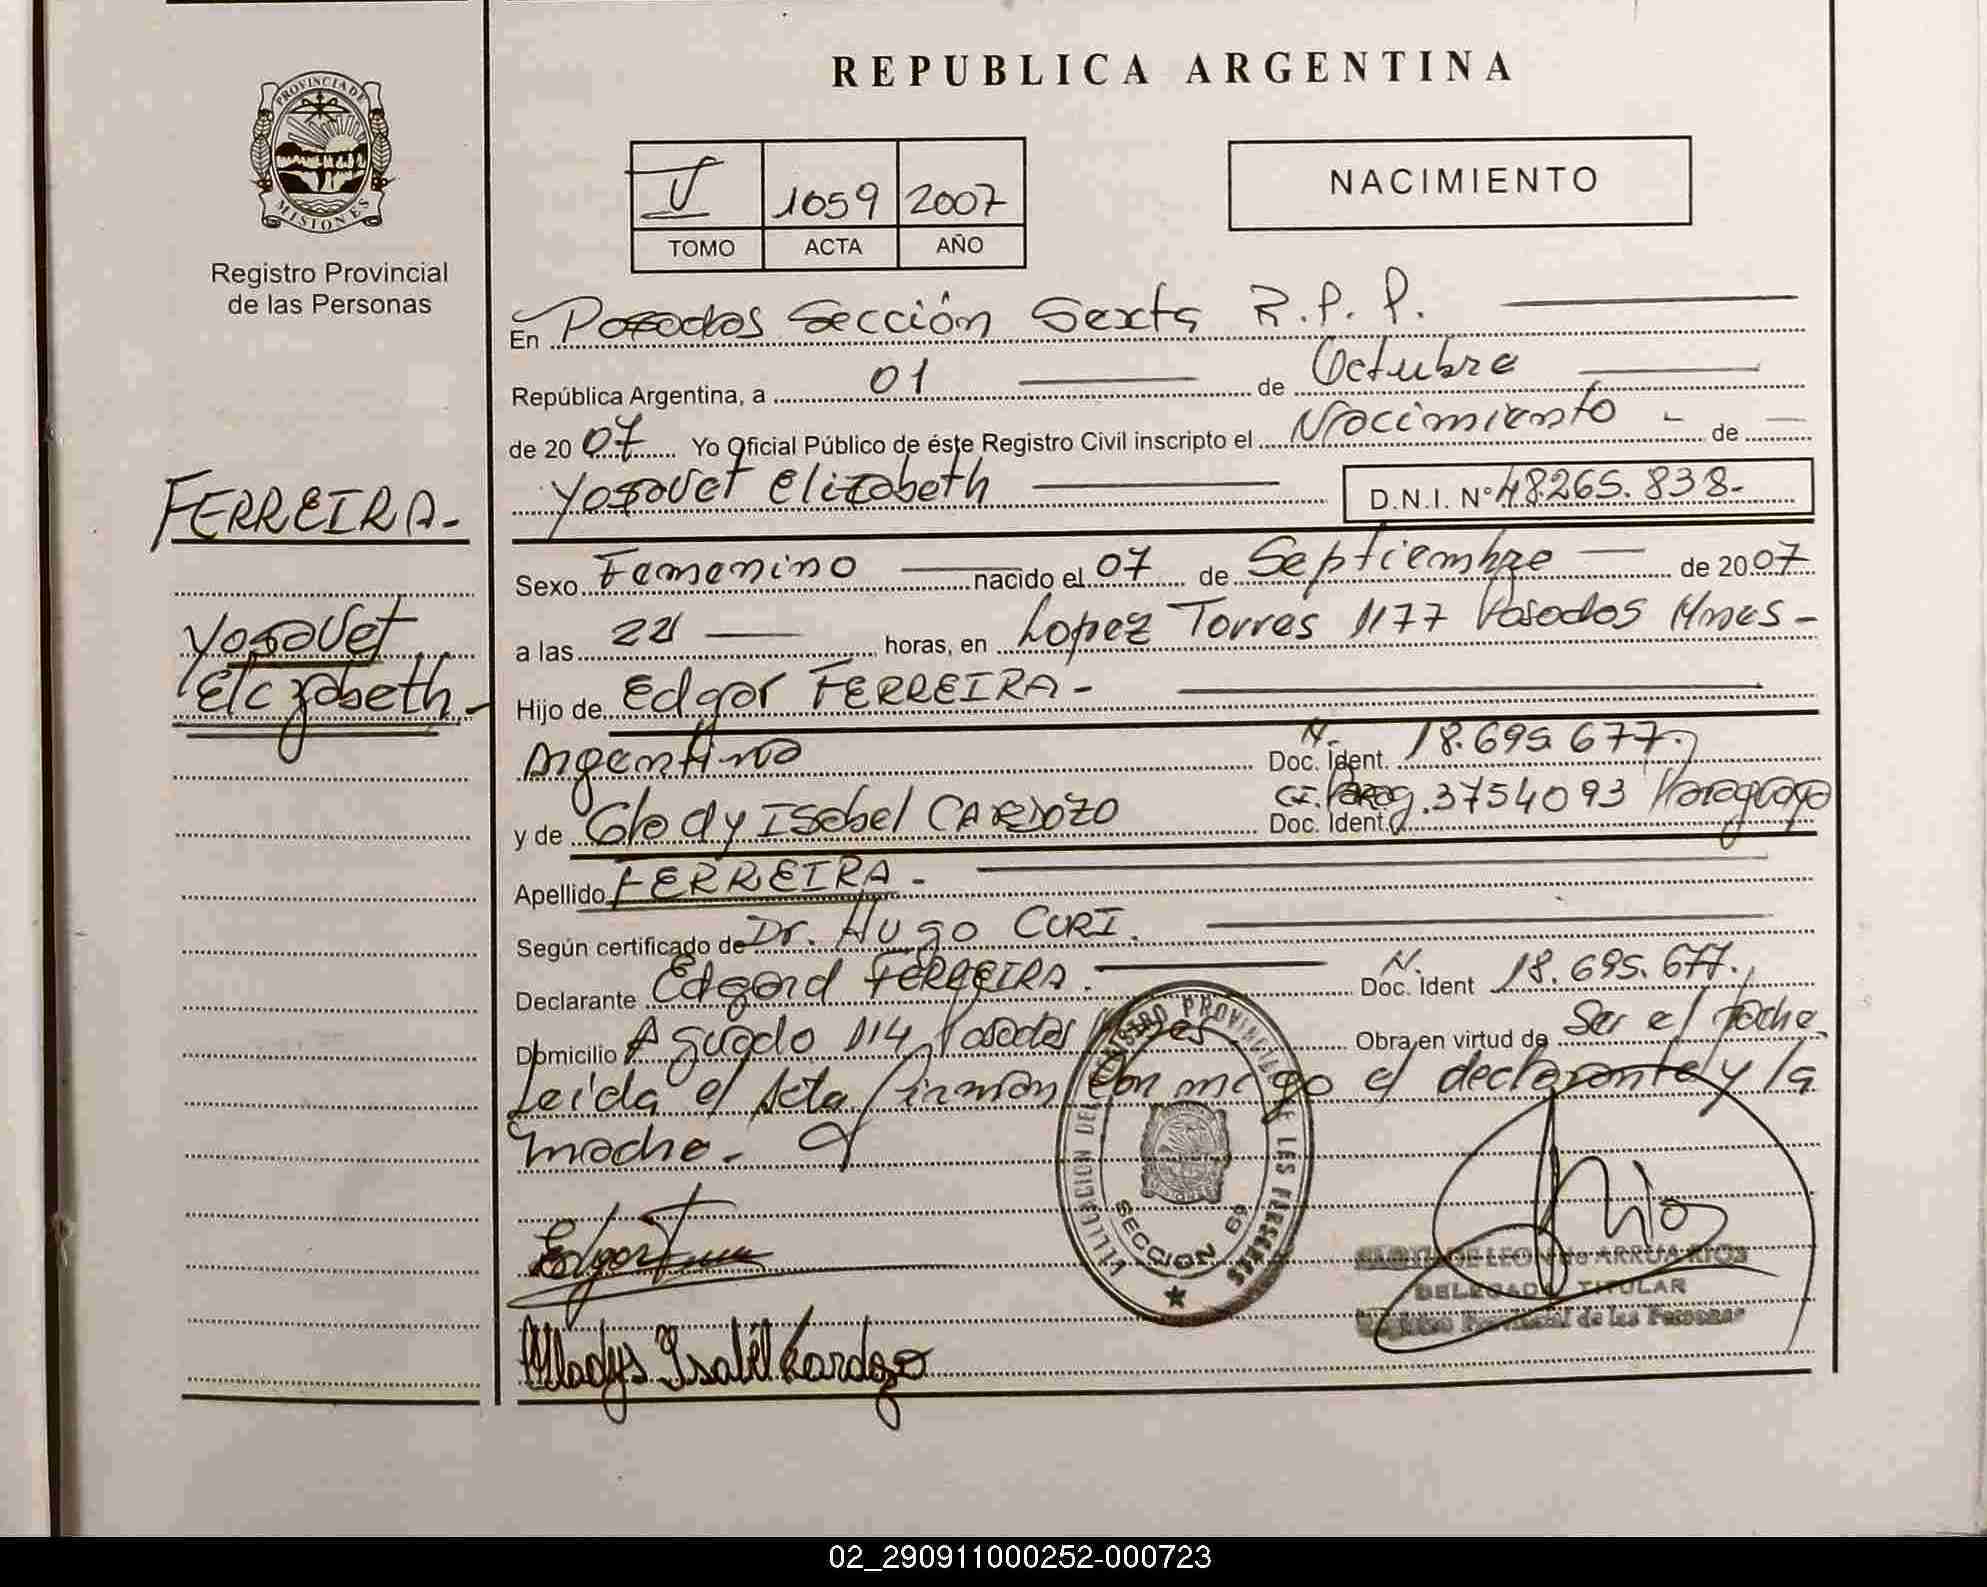 PROVINCIA DE
MISIONES
Registro Provincial
de las Personas
FERREIRA-
Yosavet
Elizabeth.-
REPUBLICA ARGENTINA
V 1059 2007
TOMO ACTA AÑO
NACIMIENTO
En Posadas Sección Sexta R.P.P.
República Argentina, a 01 de Octubre
de 2007 Yo Oficial Público de éste Registro Civil inscripto el Nacimiento - de
Yosavet Elizabeth D.N.I. Nº 48265.838-
Sexo Femenino nacido el 07 de Septiembre de 2007
a las 22 horas, en Lopez Torres 1177 Posadas Mnes-
Hijo de Edgar FERREIRA-
Argentino Doc. Ident. 18.695.677.
y de Glady Isabel CARDOZO Doc. Ident. C.I. Parag. 3754093 Paraguaya
Apellido FERREIRA-
Según certificado de Dr. Hugo CURI.
Declarante Edgard FERREIRA. Doc. Ident N. 18.695.677.
Domicilio Aguado 114 Posadas Mnes Obra en virtud de Ser el padre.
Leida el Acta firman con migo el declarante y la
madre.-
REGISTRO PROVINCIAL DE LAS PERSONAS
SECCION 6ª
Gladys Isabel Cardozo
DE LEON de ARRUA RIOS
DELEGADA TITULAR
Registro Provincial de las Personas
02_290911000252-000723